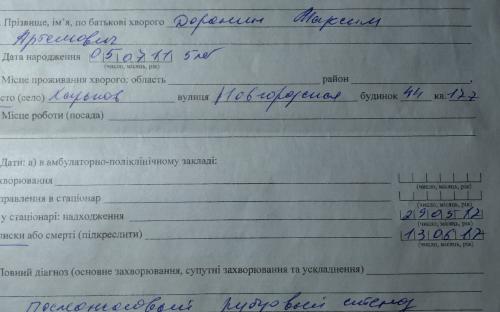 Прізвище, ім'я, по батькові хворого Доронин Максим
Артемович
Дата народження 050711 5 лет
(число, місяць, рік)
Місце проживання хворого: область район
сто (село) Харьков вулиця Новгородская будинок 44 кв. 177
Місце роботи (посада)
Дати: а) в амбулаторно-поліклінічному закладі:
хворювання
(число, місяць, рік)
правлення в стаціонар
(число, місяць, рік)
у стаціонарі: надходження 290517
(число, місяць, рік)
писки або смерті (підкреслити) 130617
(число, місяць, рік)
Повний діагноз (основне захворювання, супутні захворювання та ускладнення)
рубцовый стеноз